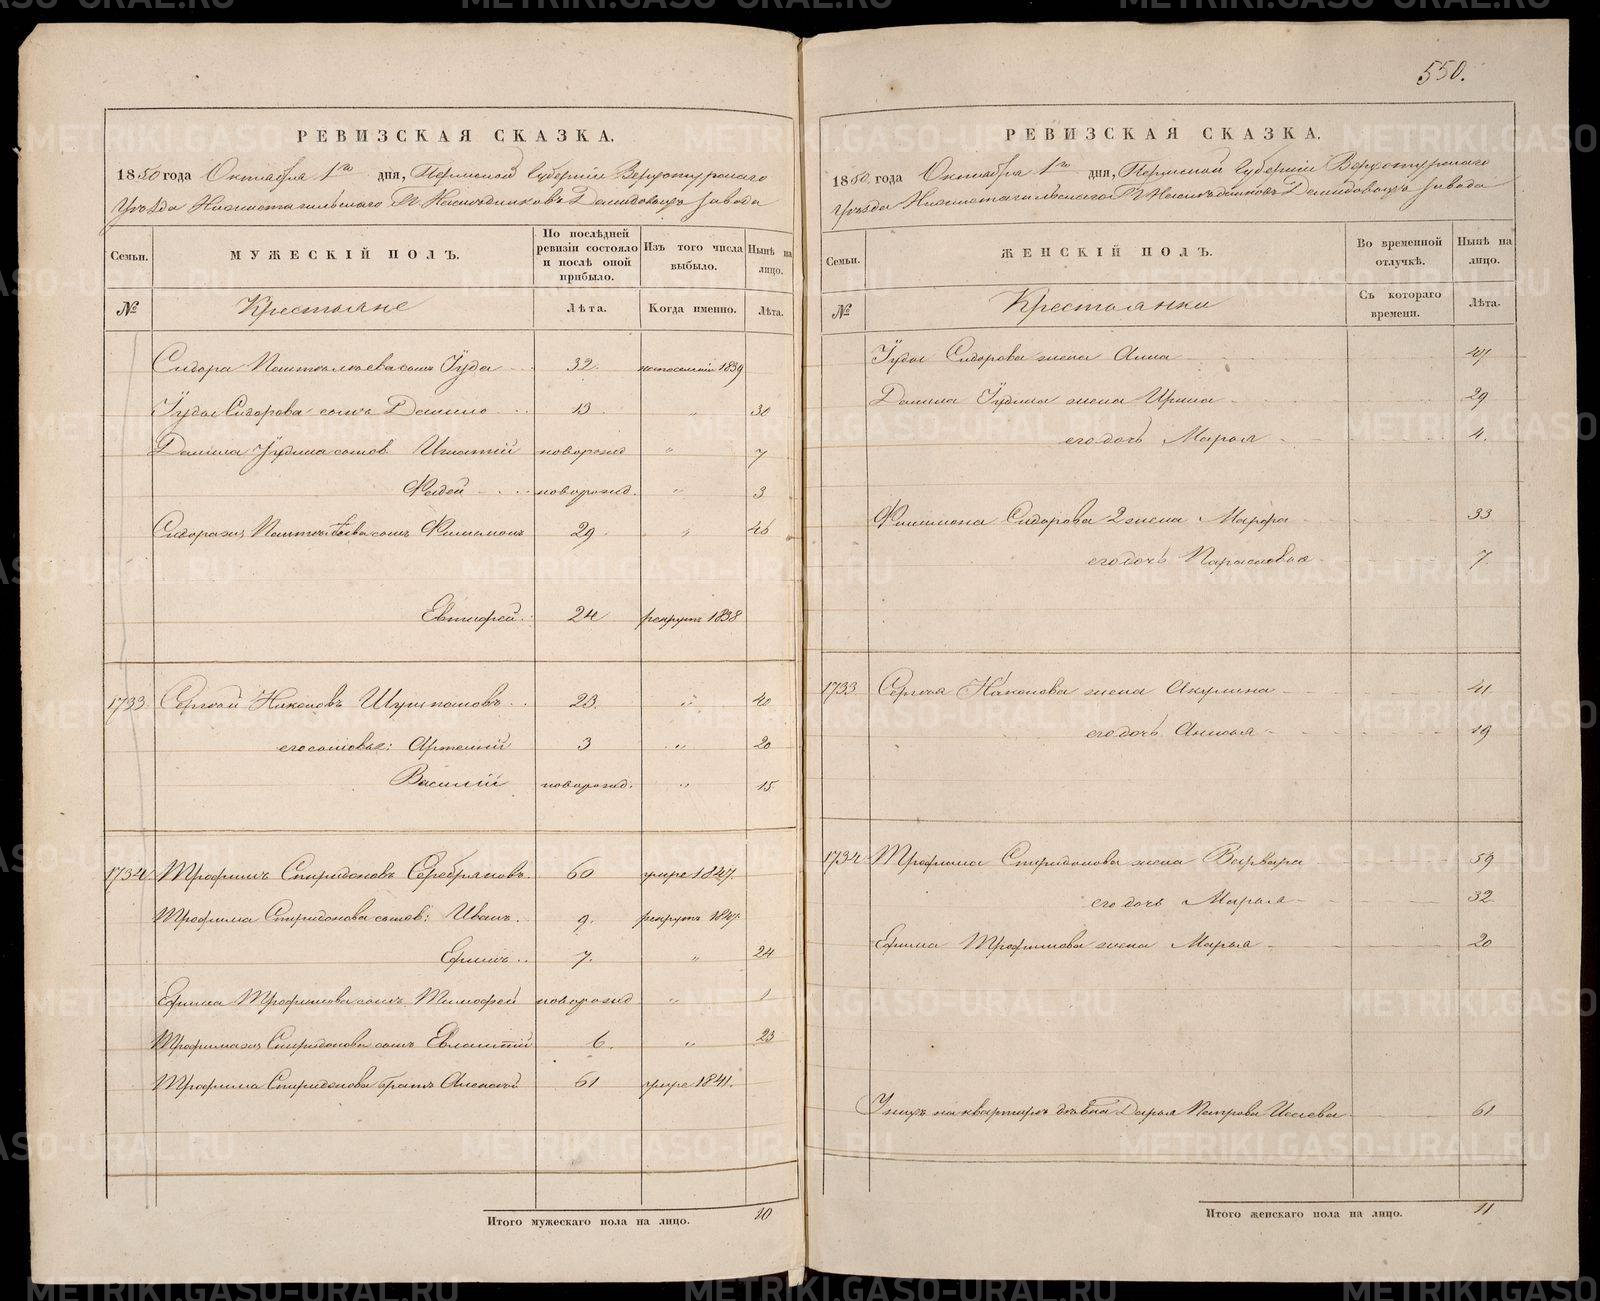 550.
РЕВИЗСКАЯ СКАЗКА.
1850 года Октября 1го дня, Пермской Губерніи Верхотурскаго
Уѣзда Нижнетагильскаго Наслѣдниковъ Демидовыхъ завода
Семьи. МУЖЕСКІЙ ПОЛЪ. По послѣдней ревизіи состояло и послѣ оной прибыло. Изъ того числа выбыло. Нынѣ на лицо.
№ Крестьяне Лѣта. Когда именно. Лѣта.
Сидора сынъ Іуда 32. 1839
Іуды Сидорова сынъ Данило 13 " 30
Данила Іудина сынов Игнатій новорожд " 7
Фадей новорожд. " 3
сынъ Филимонъ 29 " 46
Евтифей 24 рекрутъ 1838
1733 Сергѣй Никоновъ 23. " 40
его сыновья: Артемій 3 " 20
Василій новорожд. " 15
1734 Трофимъ Спиридоновъ Серебряковъ 60 умре 1847.
Трофима Спиридонова сынов: Иванъ 9. рекрутъ 1847.
Ефимъ 7. " 24
Ефима Трофимова сынъ Тимофей новорожд " 1
Трофима Спиридонова сынъ Евлампій 6. " 23
Трофима Спиридонова братъ Алексѣй 61 умре 1841.
Итого мужескаго пола на лицо. 10
РЕВИЗСКАЯ СКАЗКА.
1850 года Октября 1го дня, Пермской Губерніи Верхотурскаго
Уѣзда Нижнетагильскаго Наслѣдниковъ Демидовыхъ Завода
Семьи. ЖЕНСКІЙ ПОЛЪ. Во временной отлучкѣ. Нынѣ на лицо.
№ Крестьянки Съ котораго времени. Лѣта.
Іуды Сидорова жена Анна
Данила Іудина жена Ирина 29
его дочь Марья 4.
Филимона Сидорова 2 жена Марфа 33
его дочь Парасковья 7.
1733 Сергѣя Никонова жена Акулина 41
его дочь Анисья 19
1734 Трофима Спиридонова жена Варвара 59
его дочь Марья 32
Ефима Трофимова жена Марья 20
У нихъ на квартирѣ дѣвка Дарья Петрова Исаева 61
Итого женскаго пола на лицо. 11
METRIKI.GASO-URAL.RU